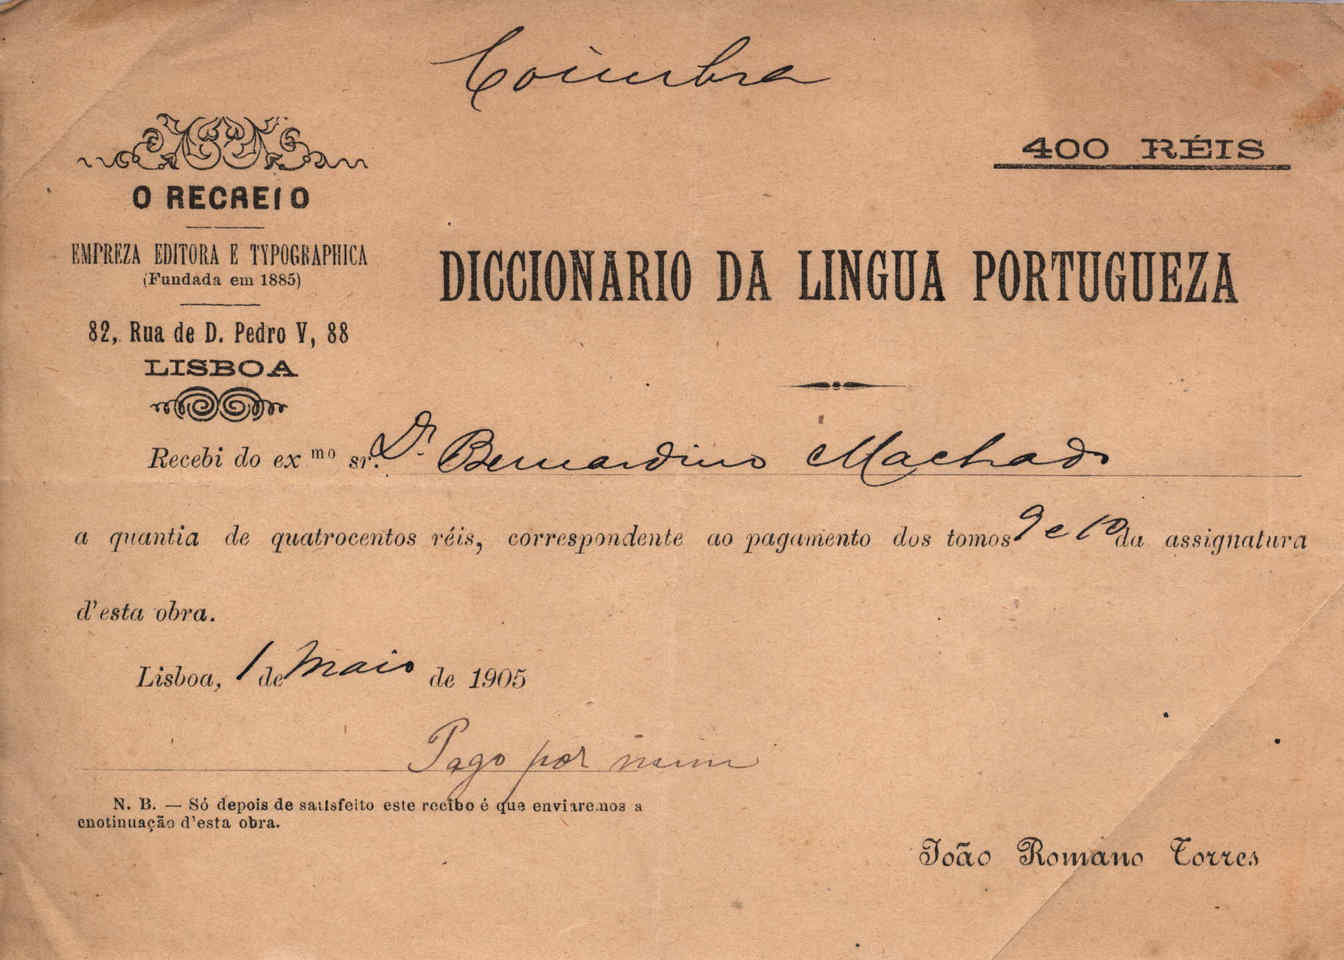 Coimbra
400 RÉIS
O RECREIO
EMPREZA EDITORA E TYPOGRAPHICA
(Fundada em 1885)
82, Rua de D. Pedro V, 88
LISBOA
DICCIONARIO DA LINGUA PORTUGUEZA
Recebi do ex.mo sr. Dr. Bernardino Machado
a quantia de quatrocentos réis, correspondente ao pagamento dos tomos 9 e 10 da assignatura
d'esta obra.
Lisboa, 1 de Maio de 1905
Pago por mim
N. B. — Só depois de satisfeito este recibo é que enviaremos a
cnotinuação d'esta obra.
João Romano Torres